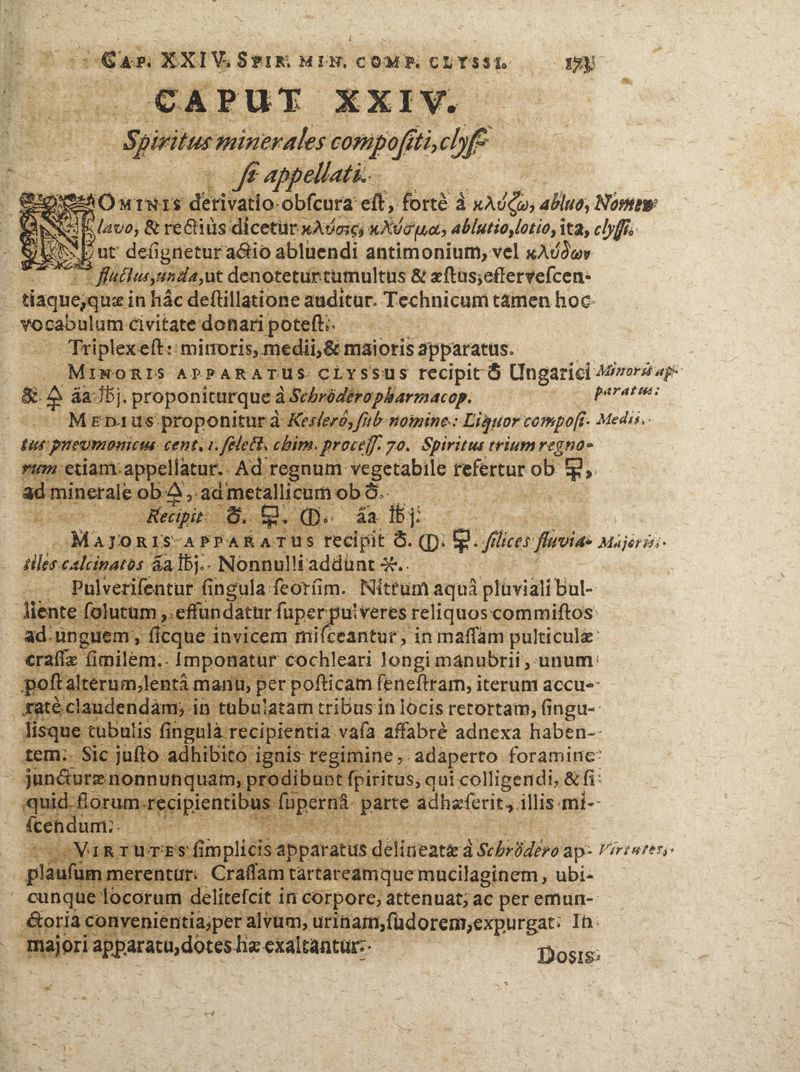 CAP. XXIV. SPIR. MIN. COMP. CLYSSI.
CAPUT XXIV.
Spiritus minerales compoſiti, clyſ-
ſi appellati.
NOMINIS derivatio obſcura eſt, forte à κλύζω, abluo, Nomen
lavo, & rectiùs dicetur κλύσις, κλύσμα, ablutio, lotio, ita, clyſſi,
ut deſignetur actio abluendi antimonium, vel κλύδων
fluctus, unda, ut denotetur tumultus & æſtus, efferveſcen-
tiaque, quæ in hâc deſtillatione auditur. Technicum tamen hoc
vocabulum civitate donari poteſt.
Triplex eſt: minoris, medii, & maioris apparatus.
MINORIS APPARATUS CLYSSUS recipit ♁ Ungarici Minoris ap-
& 🜍 āā ℔j. proponiturque à Schrödero pharmacop. paratus:
MEDIUS proponitur à Keslero, ſub nomine: Liquor compoſi- Medii.
tus pnevmonicus cent. 1. ſelect. chim. proceſſ. 70. Spiritus trium regno-
rum etiam appellatur. Ad regnum vegetabile refertur ob 🜿,
ad minerale ob 🜍, ad metallicum ob ♁.
Recipit ♁. 🜿. 🜕. āā ℔j.
MAJORIS APPARATUS recipit ♁. 🜕. 🜿. ſilices fluvia- Majoris.
tiles calcinatos āā ℔j. Nonnulli addunt 🞶.
Pulveriſentur ſingula ſeorſim. Nitrum aquâ pluviali bul-
liente ſolutum, effundatur ſuper pulveres reliquos commiſtos
ad unguem, ſicque invicem miſceantur, in maſſam pulticulæ
craſſæ ſimilem. Imponatur cochleari longi manubrii, unum
poſt alterum, lentâ manu, per poſticam feneſtram, iterum accu-
ratè claudendam, in tubulatam tribus in locis retortam, ſingu-
lisque tubulis ſingula recipientia vaſa affabrè adnexa haben-
tem. Sic juſto adhibito ignis regimine, adaperto foramine
juncturæ nonnunquam, prodibunt ſpiritus, qui colligendi, & ſi
quid florum recipientibus ſupernâ parte adhæſerit, illis mi-
ſcendum.
VIRTUTES ſimplicis apparatus delineatæ à Schrödero ap- Virtutes,
plauſum merentur. Craſſam tartareamque mucilaginem, ubi-
cunque locorum deliteſcit in corpore, attenuat, ac per emun-
ctoria convenientia, per alvum, urinam, ſudorem, expurgat. In
majori apparatu, dotes hæ exaltantur.
DOSIS